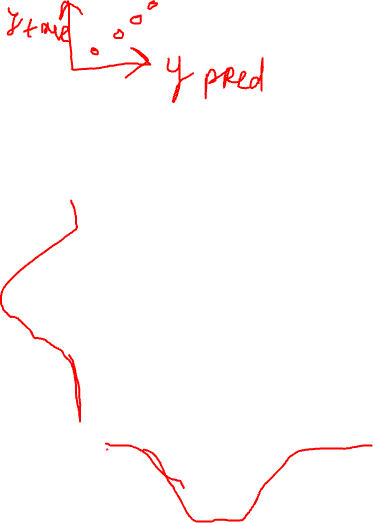 y true
y pred